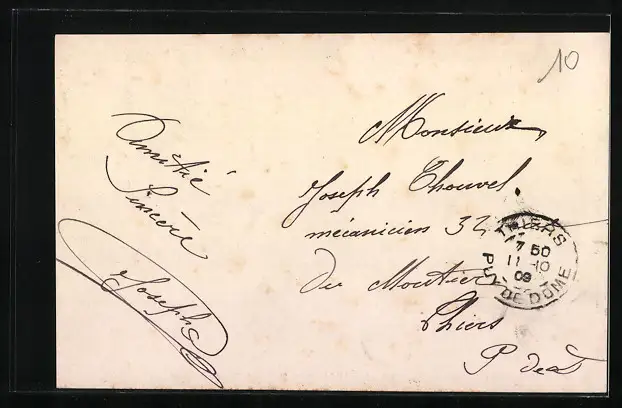 10
Amitié
Sincère
Joseph
Monsieur
Joseph Chouvel
mécanicien 32
du Moutier
Thiers
P de D
THIERS
7 50
11 - 10
09
PUY DE DOME